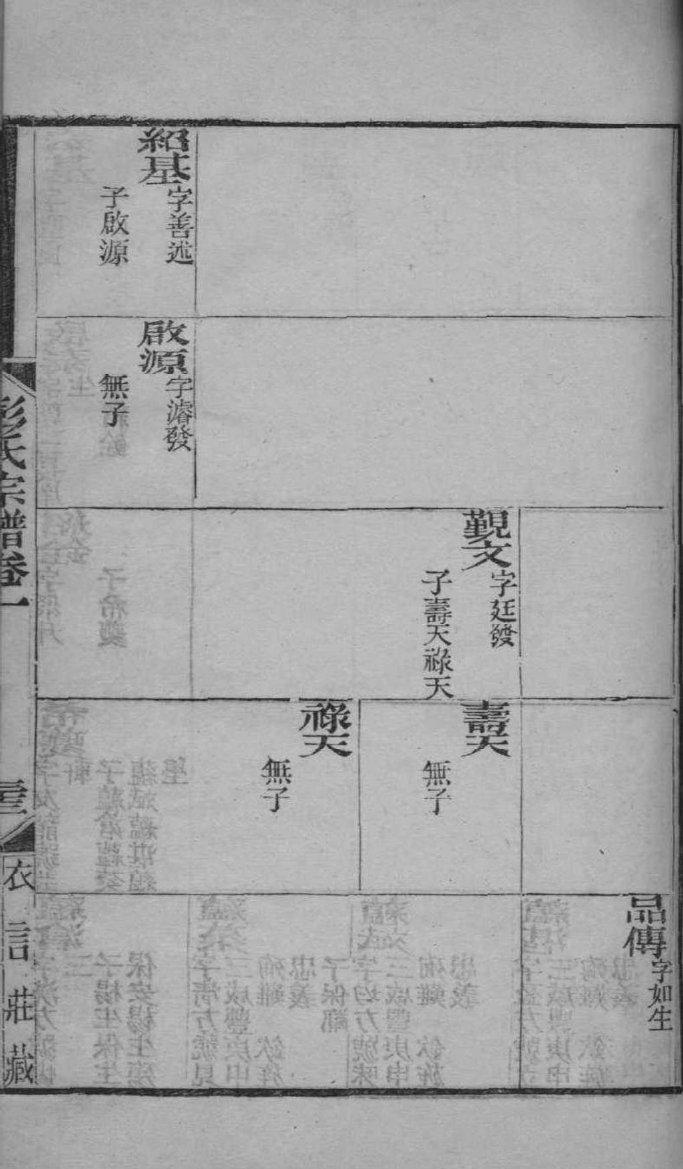 品傳字如生
壽天
無子
覲文字廷發
子壽天祿天
祿天
無子
紹基字善述
子啟源
啟源字濬發
無子
彭氏宗譜卷一
衣言莊藏